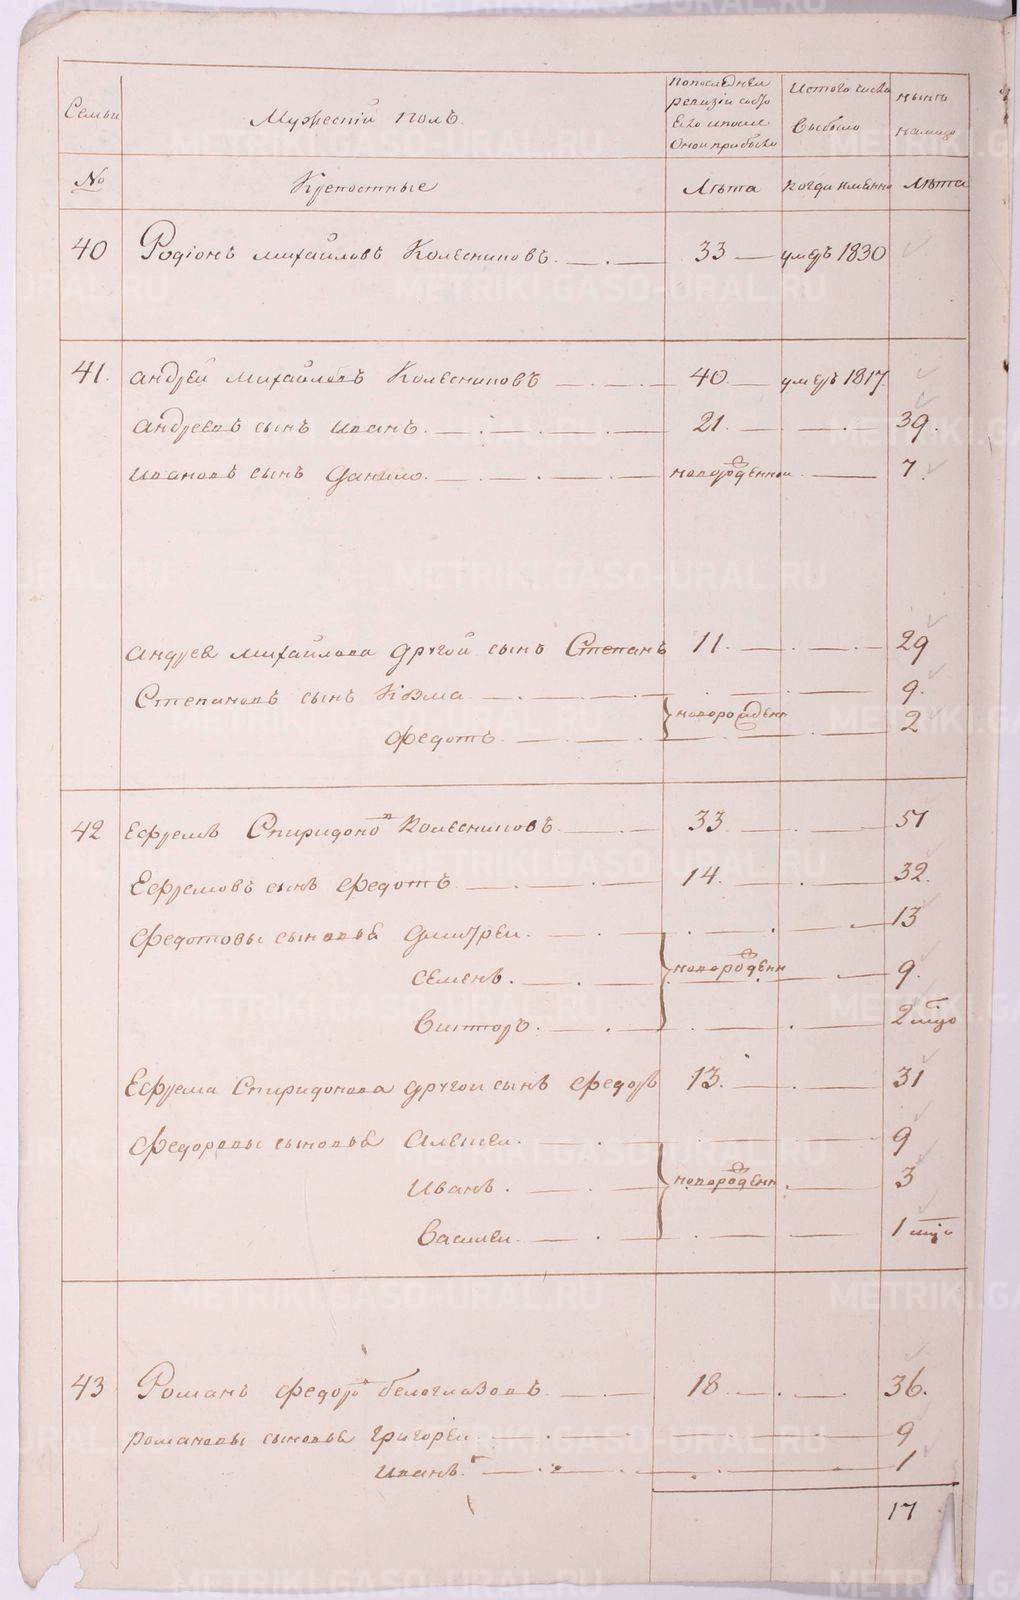 Семьи
Мужескiй полъ.
по последней
ревизiи состо
Его и после
оной прибыло
Из того числа
выбыло
ныне
налицо
№
Крепостные
Лѣта
когда именно
Лѣта
40 Родiонъ Михайловъ Колесниковъ. 33 умеръ 1830
41. Андрей Михайловъ Колесниковъ 40. умеръ 1817.
Андреевъ сынъ Иванъ. 21. 39.
Ивановъ сынъ Данило. новорожденной 7.
Андрея Михайлова другой сынъ Степанъ 11. 29
Степановъ сынъ Козма 9.
новорожденн
Федотъ. 2
42 Ефремъ Спиридоновъ Колесниковъ. 33. 51
Ефремовъ сынъ Федотъ. 14. 32.
Федотовы сыновья Дмитрей. 13
Семенъ. новорожденн 9.
Викторъ. 2 мцо
Ефрема Спиридонова другой сынъ Федоръ 13. 31
Федоровы сыновья Алексей. 9
Иванъ. новорожденн 3
Василей. 1 мцо
43 Романъ Федоръ Белоглазовъ. 18. 36.
Романовы сыновья Григорей 9
Иванъ. 1
17
METRIKI.GASO-URAL.RU